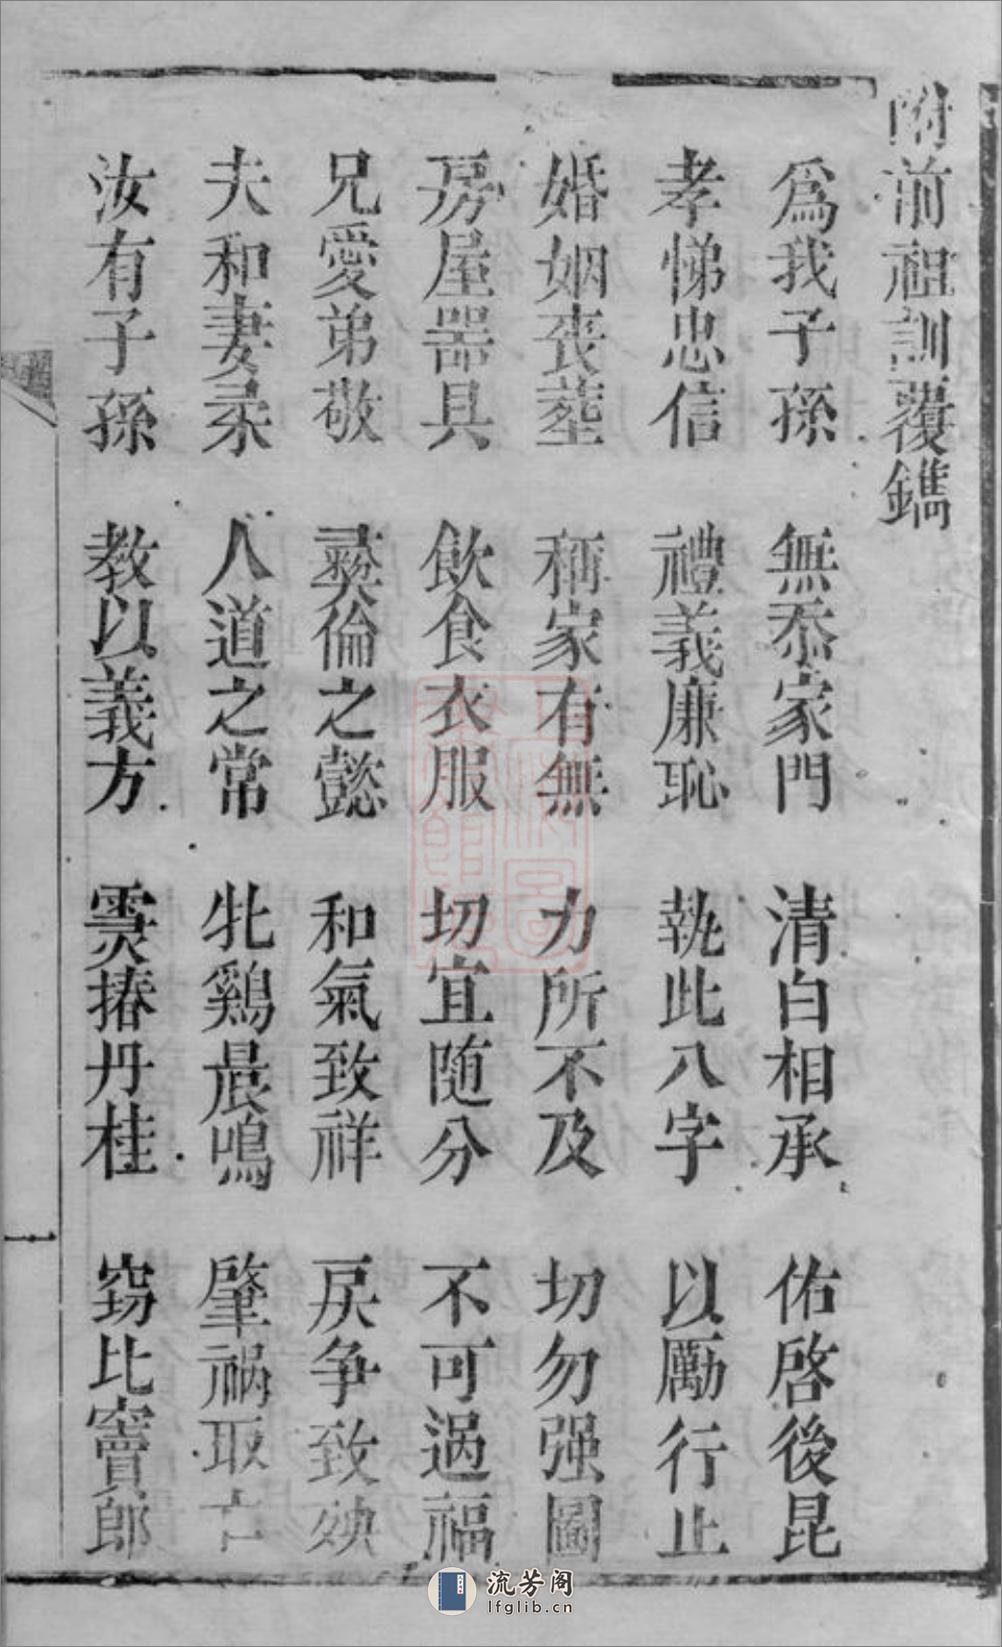 附前祖訓覆鐫
為我子孫 無忝家門 清白相承 佑啓後昆
孝悌忠信 禮義廉恥 執此八字 以厲行止
婚姻喪塟 稱家有無 力所不及 切勿强圖
房屋器具 飲食衣服 切宜随分 不可過福
兄愛弟敬 彛倫之懿 和氣致祥 戾争致殃
夫和妻柔 人道之常 牝鷄晨鳴 肇禍取亡
汝有子孫 教以義方 霛椿丹桂 窃比竇郎
一
流芳阁
lfglib.cn